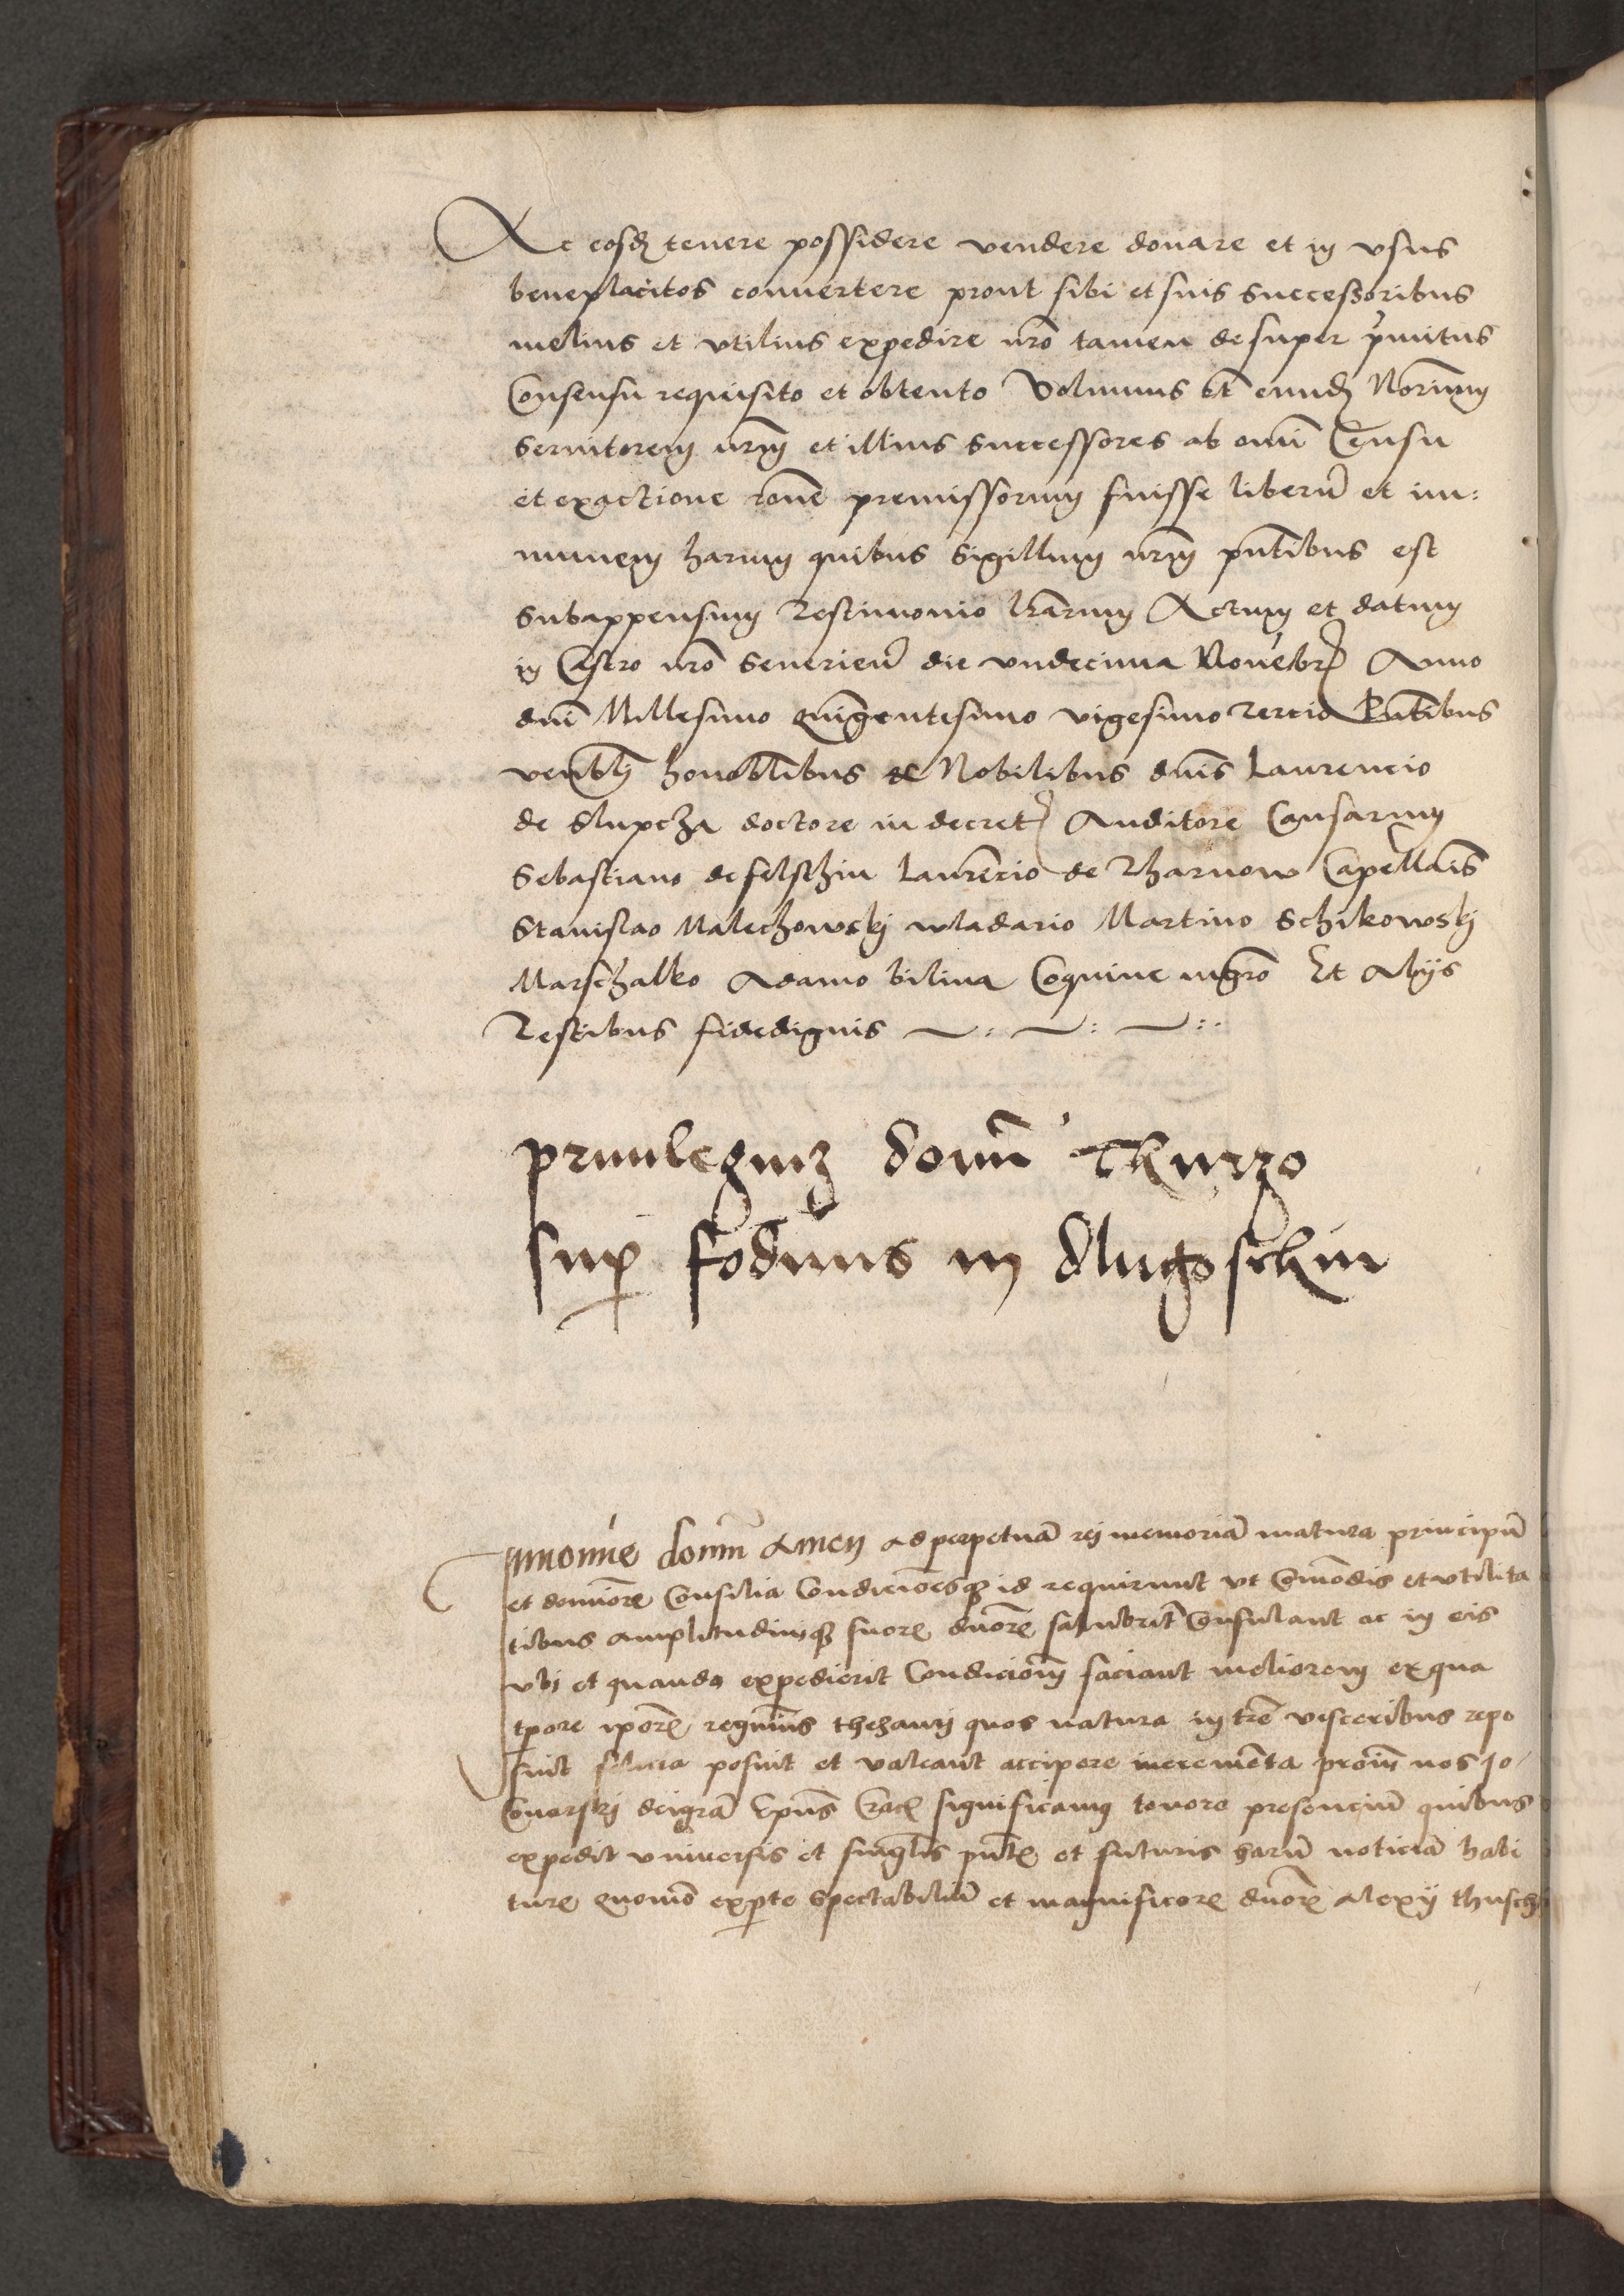 Ac eosd tenere possidere vendere donare et in vsus
beneplacitos conuertere prout sibi et suis successoribus
melius et vtilius expedire nro tamen desuper primitus
Consensu requisito et obtento Volumus eund
seruitorem nrm et illius successores ab omi Censu
et exactione rone premissorum fuisse liberu et im:
munem harum quibus Sigillum nrm pntibus est
Subappensum Testimonio lrarum Actum et datum
in Castro nro Seuerien die vndecima Nouebr Anno
dni Millesimo quingentesimo vigesimo Tercio Pntibus
venblj honoblibus et Nobilibus dnis Laurencio
de Slupcza doctore in decret Auditore Causarum
Sebastiano de felschin Laurencio de Tharnow Capellais
Stanislao Malechowskj wladario Martino Schikowskj
Marschalko Adamo bilina Coquine mgro Et Alijs
Testibus fidedignis
priuilegium domi Thurzo
sup fodinis in dlugoschin
In noie domi amen ad perpetua rej memoria matura principu
et dominor Consilia Condicioesq id requirunt vt Comodis et vtilita
tibus amplitudiniq suor duor salubrit Consulant ac in eis
vbi et quando expedierit Condiciom faciant meliorem ex qua
tpore ipor regnis thezauri quos natura in tre visceribus repo
suit posuit et valeant accipere incrementa proin nos Jo
Conarskj dei gra Epus Crac significamus tenore presenciu quibus
expedit vniuersis et singlis pnt et futuris haru noticia habi
tur quomo exparte Spectabiliu et magnificor dnor alexij thusch